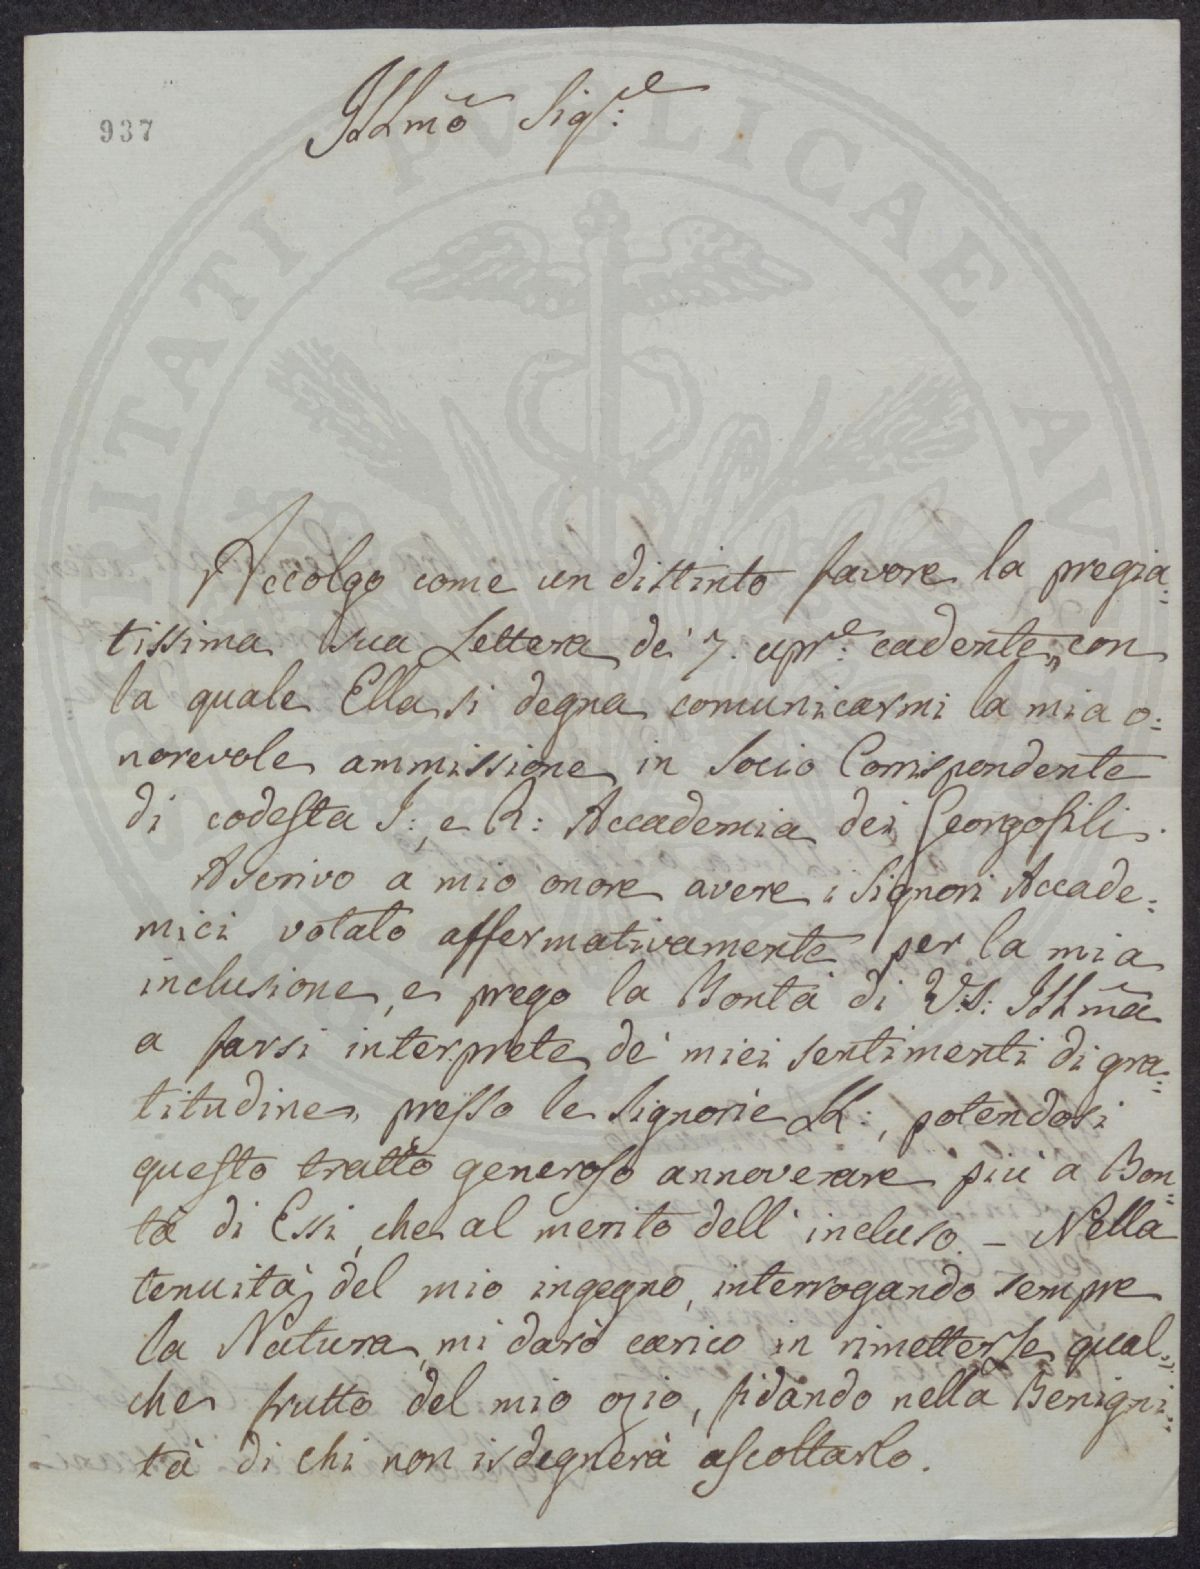 937
Illmo Sigre:
PROSPERITATI PVBLICAE AVGENDAE
Accolgo come un distinto favore la pregia:
tissima sua Lettera de' 7. aprle: cadente, con
la quale Ella si degna comunicarmi la mia o:
norevole ammissione in Socio Corrispondente
di codesta I: e R: Accademia dei Georgofili.
Ascrivo a mio onore avere i Signori Accade:
mici votato affermativamente per la mia
inclusione, e prego la Bontà di V.S: Illma
a farsi interprete de' miei sentimenti di gra:
titudine, presso le Signorie LL:, potendosi
questo tratto generoso annoverare più a Bon:
tà di Essi, che al merito dell' incluso. – Nella
tenuità del mio ingegno, interrogando sempre
la Natura, mi darò carico in rimetterle qual:
che frutto del mio ozio, fidando nella Benigni:
tà di chi non isdegnerà ascoltarlo.